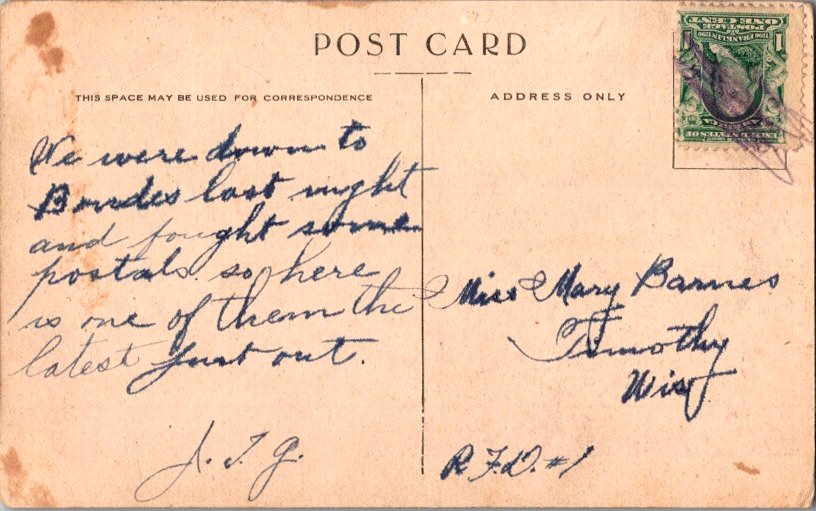 POST CARD
THIS SPACE MAY BE USED FOR CORRESPONDENCE
ADDRESS ONLY
ONE CENT
POSTAGE
1 1706 FRANKLIN 1790 1
We were down to
last night
and fought some
postals so here
is one of them the
latest just out.
J. T. G.
Miss Mary Barnes
Timothy
Wis
R.F.D. #1